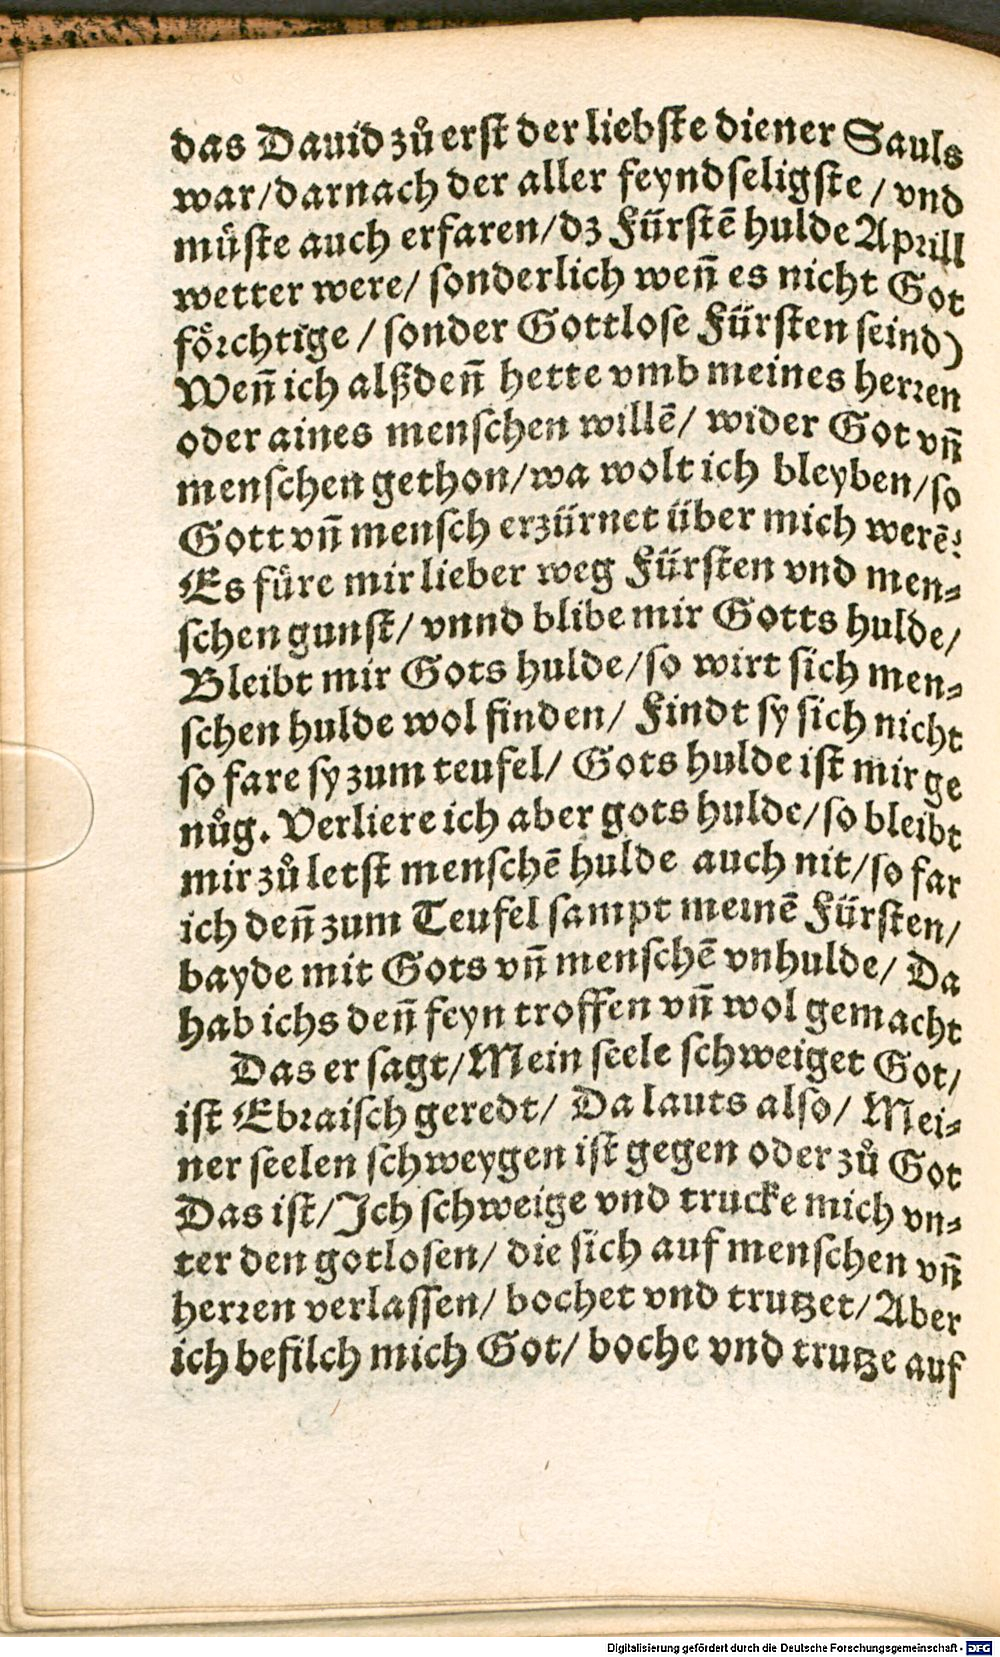 das Dauid zů erst der liebste diener Sauls
war/darnach der aller feyndseligste / vnd
müste auch erfaren/dz Fürstẽ hulde Aprill
wetter were/ sonderlich weñ es nicht Got
förchtige / sonder Gottlose Fürsten seind)
Weñ ich alßdeñ hette vmb meines herren
oder aines menschen willẽ/ wider Got vñ
menschen gethon/wa wolt ich bleyben/so
Gott vñ mensch erzürnet über mich werẽ?
Es füre mir lieber weg Fürsten vnd men⸗
schen gunst/ vnnd blibe mir Gotts hulde/
Bleibt mir Gots hulde/so wirt sich men⸗
schen hulde wol finden/ Findt sy sich nicht
so fare sy zum teufel/ Gots hulde ist mir ge
nůg. Verliere ich aber gots hulde/so bleibt
mir zů letst menschẽ hulde auch nit/so far
ich deñ zum Teufel sampt meinẽ Fürsten/
bayde mit Gots vñ menschẽ vnhulde/ Da
hab ichs deñ feyn troffen vñ wol gemacht
Das er sagt/Mein seele schweiget Got/
ist Ebraisch geredt/ Da lauts also/ Mei⸗
ner seelen schweygen ist gegen oder zů Got
Das ist/Ich schweige vnd trucke mich vn⸗
ter den gotlosen/ die sich auf menschen vñ
herren verlassen/ bochet vnd trutzet/Aber
ich befilch mich Got/ boche vnd trutze auf
Digitalisierung gefördert durch die Deutsche Forschungsgemeinschaft - DFG